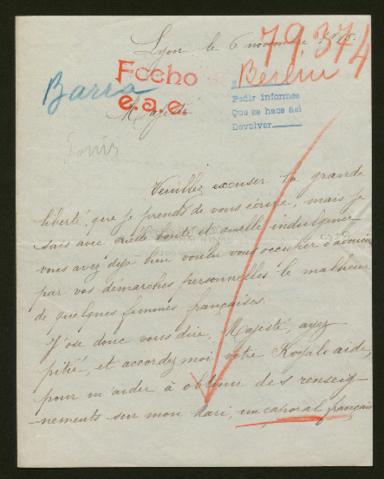 Lyon le 6 novembre
79.374
Fecho
e.a.e.
Barra
Berlin
Pedir informes
Que se hace asi
Devolver
Majesté
Veuillez excuser la grande
liberté que je prends de vous écrire, mais je
sais avec quelle bonté et quelle indulgence
vous avez déjà bien voulu vous occuper d'adoucir
par vos démarches personnelles le malheur
de quelques femmes françaises.
J'ose donc vous dire, Majesté, ayez
pitié, et accordez moi votre Royale aide,
pour m'aider à obtenir des renseig-
nements sur mon Mari, un caporal français